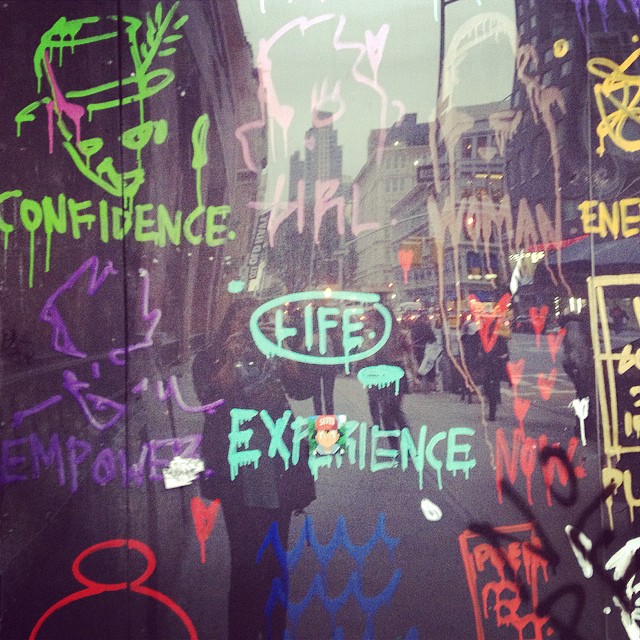 CONFIDENCE.
WOMAN
ENE
LIFE.
EMPOWER
EXPERIENCE
NOW.